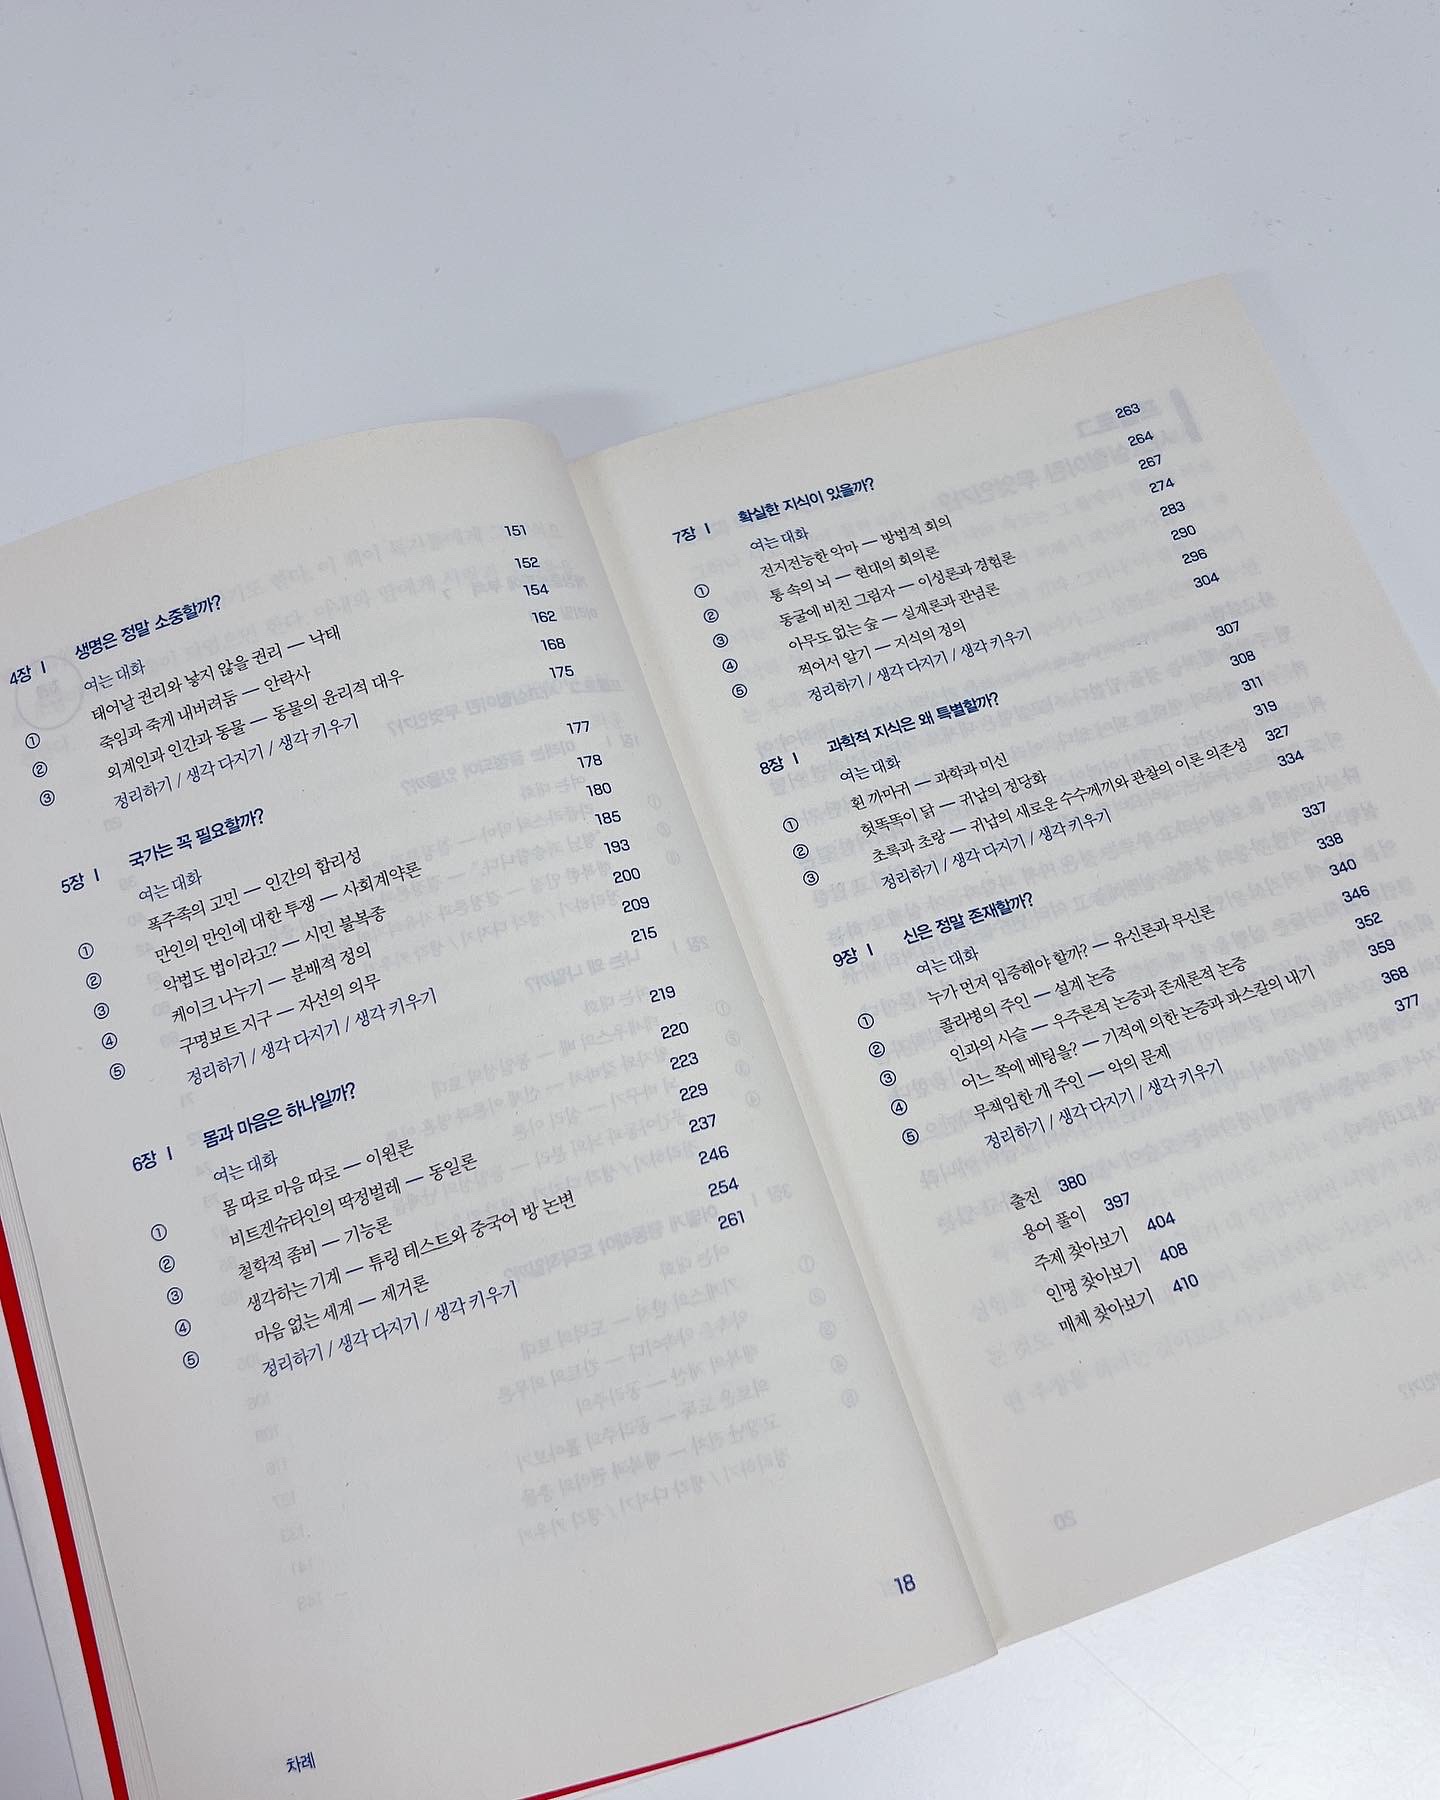 4장 | 생명은 정말 소중할까? 151
여는 대화 152
① 태어날 권리와 낳지 않을 권리 — 낙태 154
② 죽임과 죽게 내버려둠 — 안락사 162
③ 외계인과 인간과 동물 — 동물의 윤리적 대우 168
정리하기 / 생각 다지기 / 생각 키우기 175
5장 | 국가는 꼭 필요할까? 177
여는 대화 178
① 폭주족의 고민 — 인간의 합리성 180
② 만인의 만인에 대한 투쟁 — 사회계약론 185
③ 악법도 법이라고? — 시민 불복종 193
④ 케이크 나누기 — 분배적 정의 200
⑤ 구명보트 지구 — 자선의 의무 209
정리하기 / 생각 다지기 / 생각 키우기 215
6장 | 몸과 마음은 하나일까? 219
여는 대화 220
① 몸 따로 마음 따로 — 이원론 223
② 비트겐슈타인의 딱정벌레 — 동일론 229
③ 철학적 좀비 — 기능론 237
④ 생각하는 기계 — 튜링 테스트와 중국어 방 논변 246
⑤ 마음 없는 세계 — 제거론 254
정리하기 / 생각 다지기 / 생각 키우기 261
차례
18
7장 | 확실한 지식이 있을까? 263
여는 대화 264
① 전지전능한 악마 — 방법적 회의 267
② 통 속의 뇌 — 현대의 회의론 274
③ 동굴에 비친 그림자 — 이성론과 경험론 283
④ 아무도 없는 숲 — 실재론과 관념론 290
⑤ 찍어서 알기 — 지식의 정의 296
정리하기 / 생각 다지기 / 생각 키우기 304
8장 | 과학적 지식은 왜 특별할까? 307
여는 대화 308
① 흰 까마귀 — 과학과 미신 311
② 헛똑똑이 닭 — 귀납의 정당화 319
③ 초록과 초랑 — 귀납의 새로운 수수께끼와 관찰의 이론 의존성 327
정리하기 / 생각 다지기 / 생각 키우기 334
9장 | 신은 정말 존재할까? 337
여는 대화 338
① 누가 먼저 입증해야 할까? — 유신론과 무신론 340
② 콜라병의 주인 — 설계 논증 346
③ 인과의 사슬 — 우주론적 논증과 존재론적 논증 352
④ 어느 쪽에 베팅을? — 기적에 의한 논증과 파스칼의 내기 359
⑤ 무책임한 개 주인 — 악의 문제 368
정리하기 / 생각 다지기 / 생각 키우기 377
출전 380
용어 풀이 397
주제 찾아보기 404
인명 찾아보기 408
매체 찾아보기 410